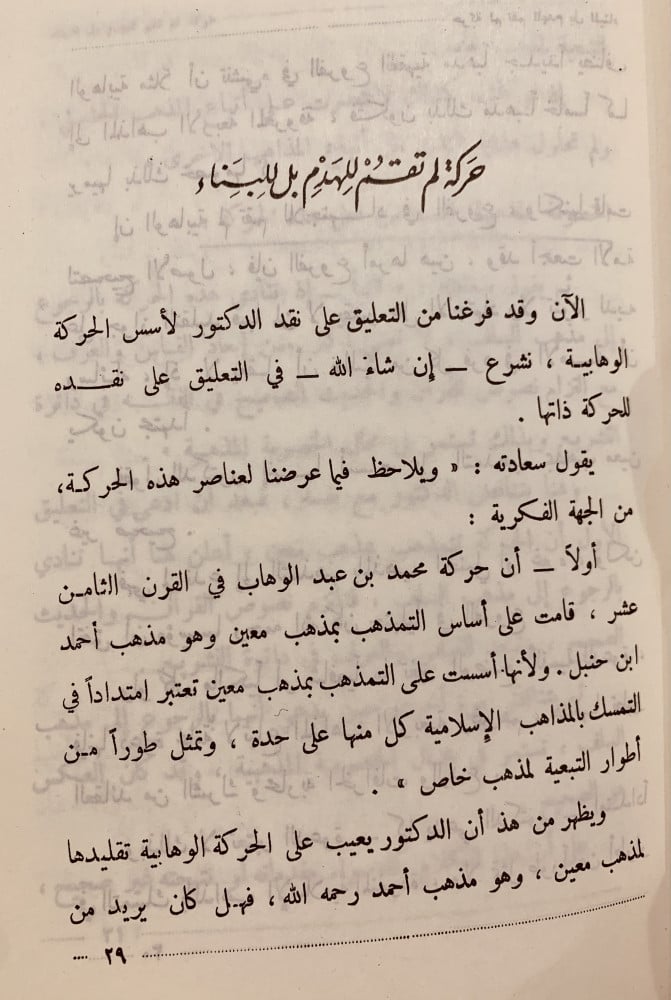 حركة لم تقم للهدم بل للبناء
الآن وقد فرغنا من التعليق على نقد الدكتور لأسس الحركة
الوهابية ، نشرع – إن شاء الله – في التعليق على نقده
للحركة ذاتها .
يقول سعادته : « ويلاحظ فيما عرضنا لعناصر هذه الحركة،
من الجهة الفكرية :
أولاً – أن حركة محمد بن عبد الوهاب في القرن الثامن
عشر ، قامت على أساس التمذهب بمذهب معين وهو مذهب أحمد
ابن حنبل . ولأنها أسست على التمذهب بمذهب معين تعتبر امتداداً في
التمسك بالمذاهب الإسلامية كل منها على حدة ، وتمثل طوراً من
أطوار التبعية لمذهب خاص » .
ويظهر من هذ أن الدكتور يعيب على الحركة الوهابية تقليدها
لمذهب معين ، وهو مذهب أحمد رحمه الله ، فهل كان يريد من
٢٩